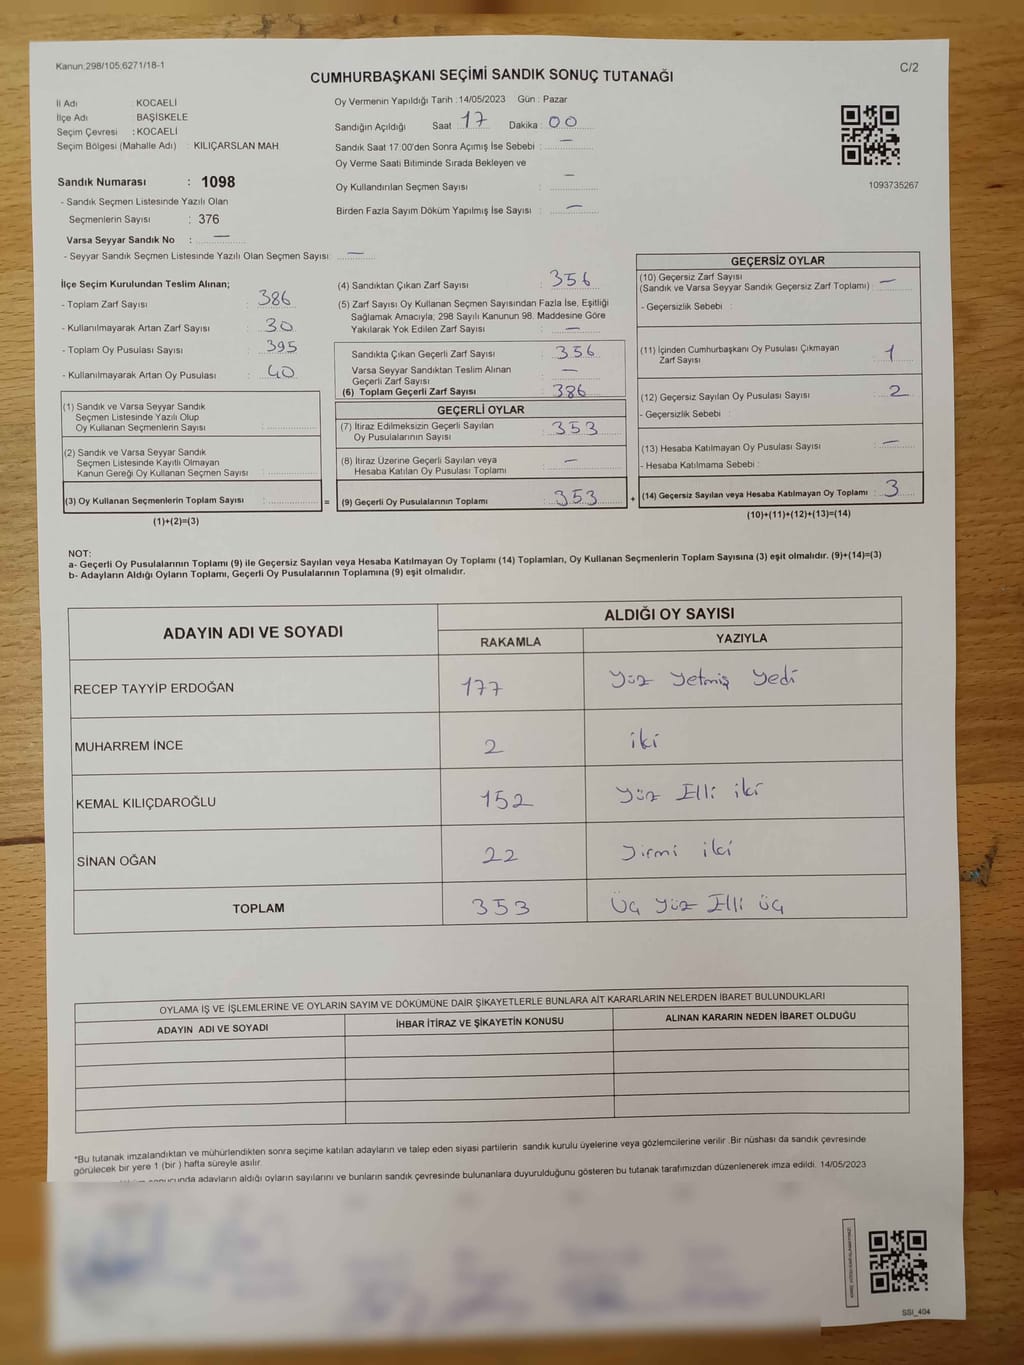 Kanun;298/105;6271/18-1
C/2
CUMHURBAŞKANI SEÇİMİ SANDIK SONUÇ TUTANAĞI
İl Adı : KOCAELİ
İlçe Adı : BAŞİSKELE
Seçim Çevresi : KOCAELİ
Seçim Bölgesi (Mahalle Adı) : KILIÇARSLAN MAH
Oy Vermenin Yapıldığı Tarih :14/05/2023 Gün : Pazar
Sandığın Açıldığı Saat : 17 Dakika : 00
Sandık Saat 17:00'den Sonra Açımış İse Sebebi : —
Oy Verme Saati Bitiminde Sırada Bekleyen ve
Oy Kullandırılan Seçmen Sayısı : —
Birden Fazla Sayım Döküm Yapılmış İse Sayısı : —
1093735267
Sandık Numarası : 1098
- Sandık Seçmen Listesinde Yazılı Olan
Seçmenlerin Sayısı : 376
Varsa Seyyar Sandık No : —
- Seyyar Sandık Seçmen Listesinde Yazılı Olan Seçmen Sayısı: —
İlçe Seçim Kurulundan Teslim Alınan;
- Toplam Zarf Sayısı : 386
- Kullanılmayarak Artan Zarf Sayısı : 30
- Toplam Oy Pusulası Sayısı : 395
- Kullanılmayarak Artan Oy Pusulası : 40
(1) Sandık ve Varsa Seyyar Sandık
Seçmen Listesinde Yazılı Olup
Oy Kullanan Seçmenlerin Sayısı :
(2) Sandık ve Varsa Seyyar Sandık
Seçmen Listesinde Kayıtlı Olmayan
Kanun Gereği Oy Kullanan Seçmen Sayısı :
(3) Oy Kullanan Seçmenlerin Toplam Sayısı : =
(1)+(2)=(3)
(4) Sandıktan Çıkan Zarf Sayısı : 356
(5) Zarf Sayısı Oy Kullanan Seçmen Sayısından Fazla İse, Eşitliği
Sağlamak Amacıyla; 298 Sayılı Kanunun 98. Maddesine Göre
Yakılarak Yok Edilen Zarf Sayısı : —
Sandıkta Çıkan Geçerli Zarf Sayısı : 356
Varsa Seyyar Sandıktan Teslim Alınan
Geçerli Zarf Sayısı : —
(6) Toplam Geçerli Zarf Sayısı : 386
GEÇERLİ OYLAR
(7) İtiraz Edilmeksizin Geçerli Sayılan
Oy Pusulalarının Sayısı : 353
(8) İtiraz Üzerine Geçerli Sayılan veya
Hesaba Katılan Oy Pusulası Toplamı : —
(9) Geçerli Oy Pusulalarının Toplamı : 353 +
GEÇERSİZ OYLAR
(10) Geçersiz Zarf Sayısı
(Sandık ve Varsa Seyyar Sandık Geçersiz Zarf Toplamı) : —
- Geçersizlik Sebebi :
(11) İçinden Cumhurbaşkanı Oy Pusulası Çıkmayan
Zarf Sayısı : 1
(12) Geçersiz Sayılan Oy Pusulası Sayısı : 2
- Geçersizlik Sebebi :
(13) Hesaba Katılmayan Oy Pusulası Sayısı : —
- Hesaba Katılmama Sebebi :
(14) Geçersiz Sayılan veya Hesaba Katılmayan Oy Toplamı : 3
(10)+(11)+(12)+(13)=(14)
NOT:
a- Geçerli Oy Pusulalarının Toplamı (9) ile Geçersiz Sayılan veya Hesaba Katılmayan Oy Toplamı (14) Toplamları, Oy Kullanan Seçmenlerin Toplam Sayısına (3) eşit olmalıdır. (9)+(14)=(3)
b- Adayların Aldığı Oyların Toplamı, Geçerli Oy Pusulalarının Toplamına (9) eşit olmalıdır.
ADAYIN ADI VE SOYADI
ALDIĞI OY SAYISI
RAKAMLA YAZIYLA
RECEP TAYYİP ERDOĞAN 177 Yüz Yetmiş Yedi
MUHARREM İNCE 2 iki
KEMAL KILIÇDAROĞLU 152 Yüz Elli iki
SİNAN OĞAN 22 Yirmi iki
TOPLAM 353 Üç Yüz Elli üç
OYLAMA İŞ VE İŞLEMLERİNE VE OYLARIN SAYIM VE DÖKÜMÜNE DAİR ŞİKAYETLERLE BUNLARA AİT KARARLARIN NELERDEN İBARET BULUNDUKLARI
ADAYIN ADI VE SOYADI İHBAR İTİRAZ VE ŞİKAYETİN KONUSU ALINAN KARARIN NEDEN İBARET OLDUĞU
*Bu tutanak imzalandıktan ve mühürlendikten sonra seçime katılan adayların ve talep eden siyasi partilerin sandık kurulu üyelerine veya gözlemcilerine verilir .Bir nüshası da sandık çevresinde
görülecek bir yere 1 (bir ) hafta süreyle asılır.
adayların aldığı oyların sayılarını ve bunların sandık çevresinde bulunanlara duyurulduğunu gösteren bu tutanak tarafımızdan düzenlenerek imza edildi. 14/05/2023
SSI_404